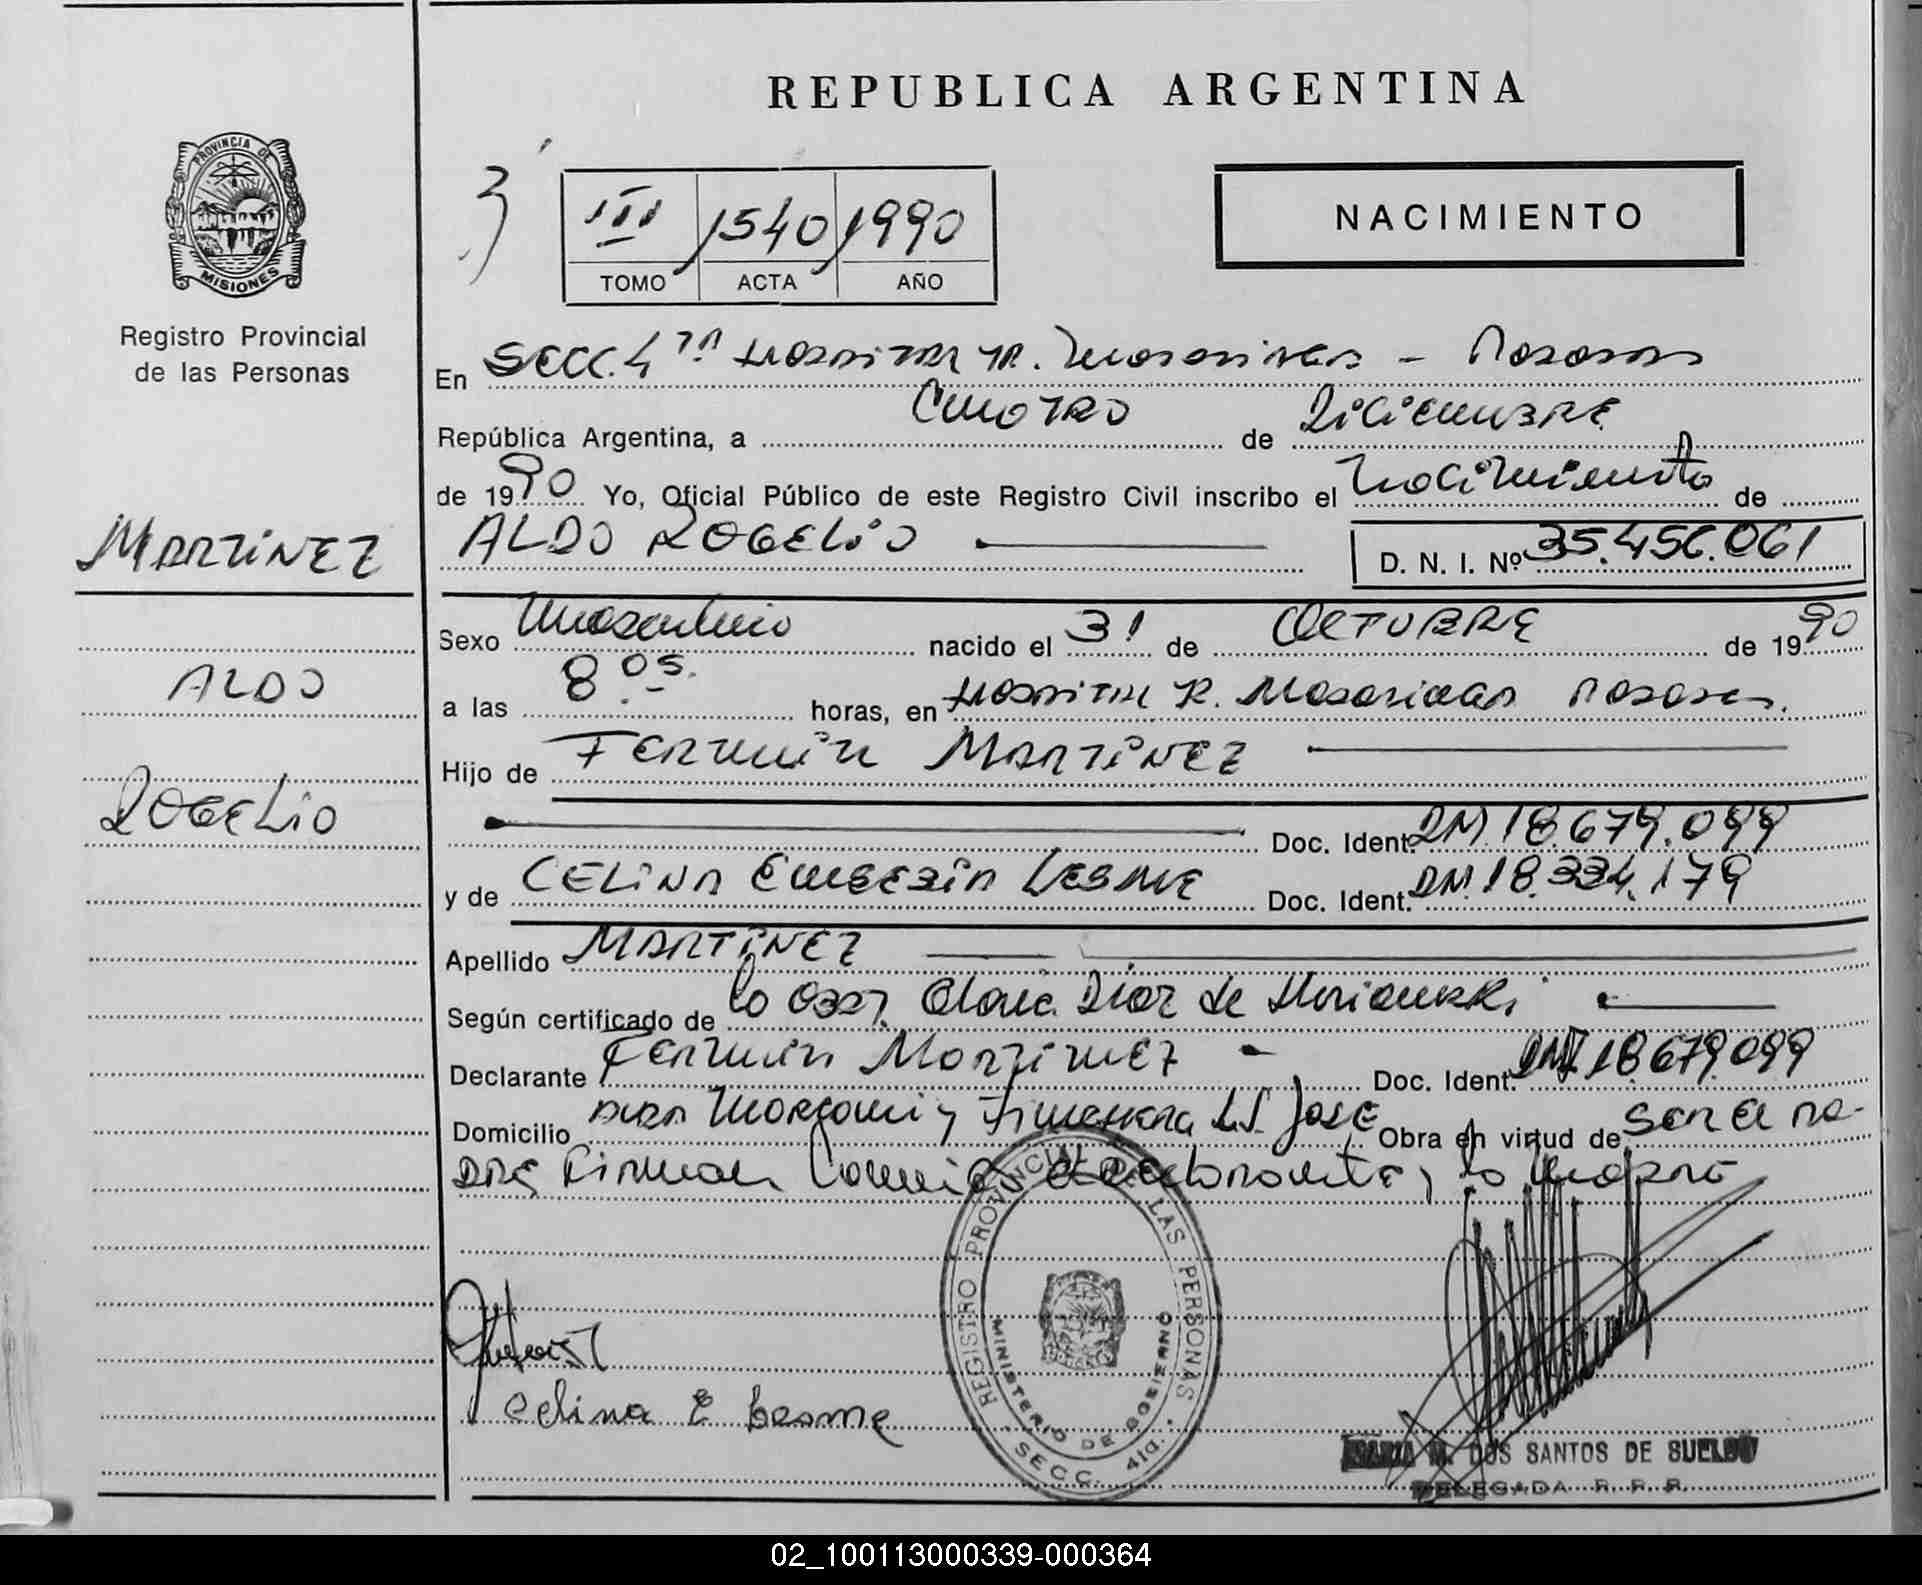 REPUBLICA ARGENTINA
PROVINCIA DE
MISIONES
Registro Provincial
de las Personas
III 1540 1990
TOMO ACTA AÑO
NACIMIENTO
En Secc. 4ta Hospital R. Madariaga - Posadas
República Argentina, a Cuatro de Diciembre
de 1990 Yo, Oficial Público de este Registro Civil inscribo el Nacimiento de
MARTINEZ
ALDO ROGELIO
D. N. I. Nº 35.456.061
Sexo Masculino nacido el 31 de OCTUBRE de 1990
ALDO
a las 8.05. horas, en Hospital R. Madariaga Posadas.
Hijo de Fermin MARTINEZ
ROGELIO
Doc. Ident. DM 18.679.099
y de CELINA EUSEBIA LESME Doc. Ident. DM 18.334.179
Apellido MARTINEZ
Según certificado de la Obst. Díaz de
Declarante Fermin Martinez Doc. Ident. DNI 18.679.099
Domicilio y S. José Obra en virtud de Ser el pa-
dre Firman la madre
REGISTRO PROVINCIAL DE LAS PERSONAS
MINISTERIO DE GOBIERNO
SECC. 4ta.
Celina E Lesme
MARIA M. DOS SANTOS DE SUELDO
DELEGADA R. P. P.
02_100113000339-000364